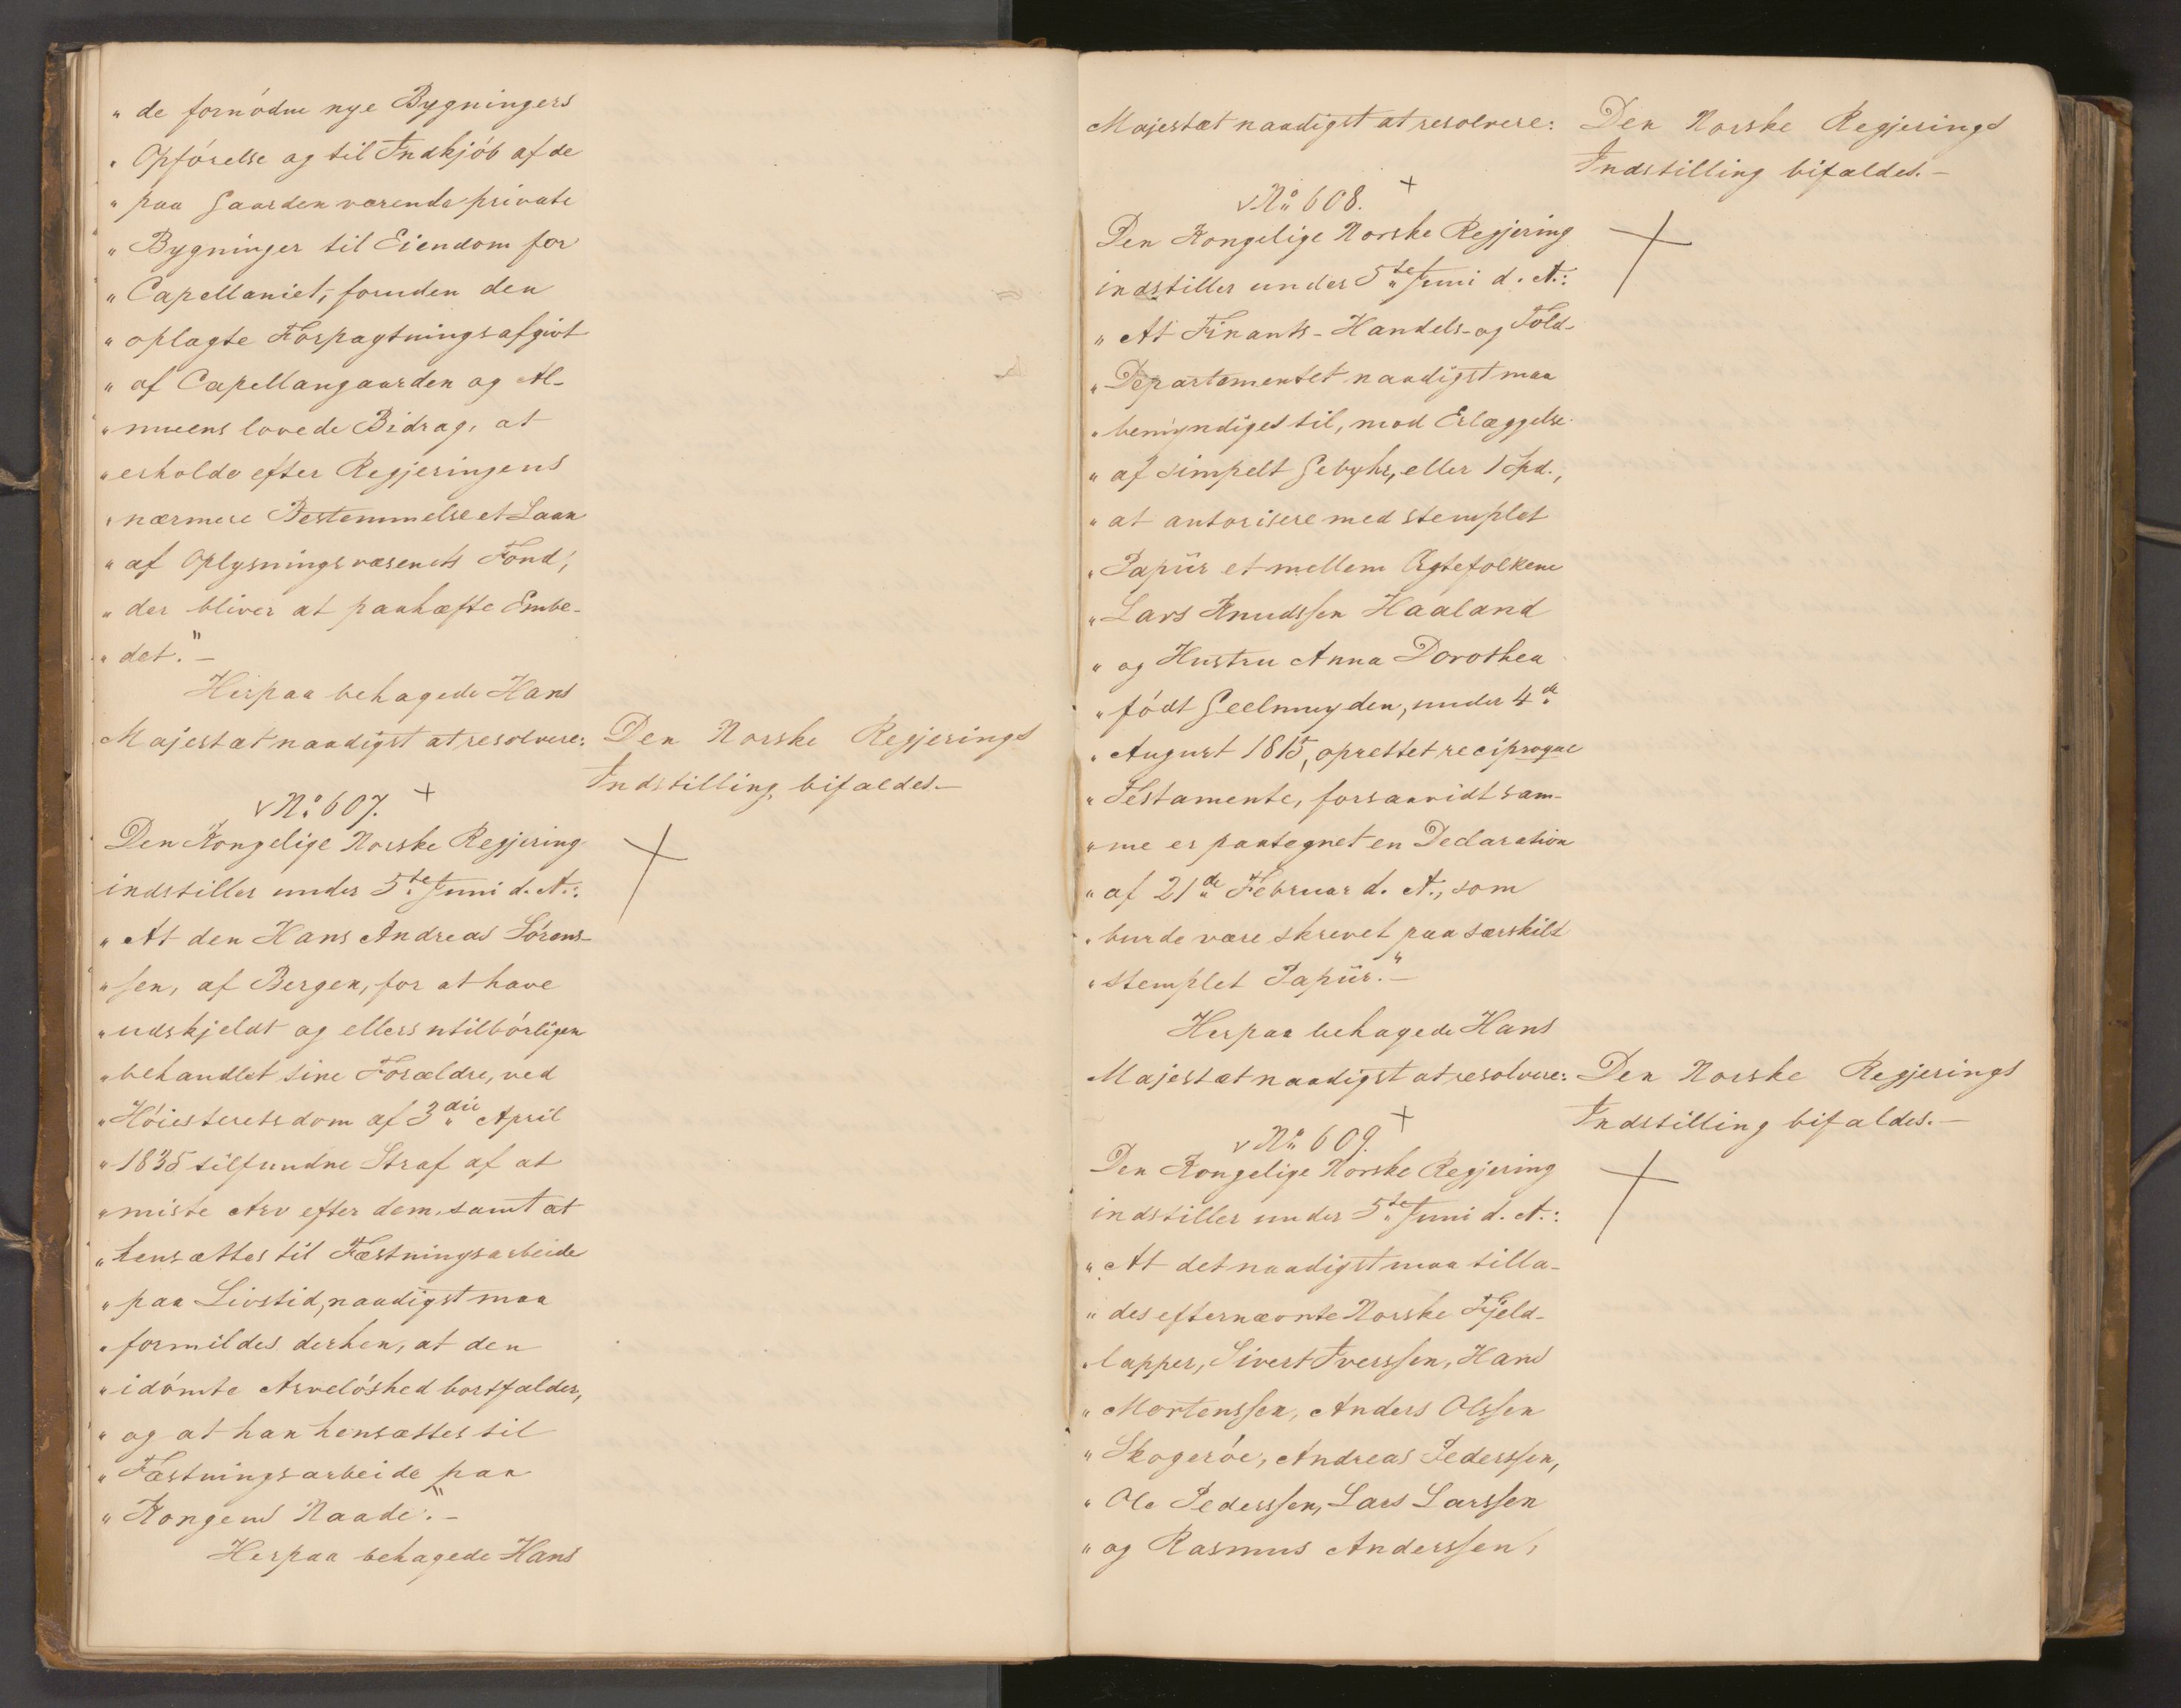 " de fornödne nye Bygningers
" Opförelse og til Indkjöb af de
" paa Gaarden værende private
" Bygninger til Eiendom for
" Capellaniet, foruden den
" oplagte Forpagtningsafgivt
" af Capellangaarden og Al-
" muens lovede Bidrag, at
" erholde efter Regjeringens
" nærmere Bestemmelse et Laan
" af Oplysningsvæsenets Fond,
" der bliver at paahæfte Embe-
" det." -
Herpaa behagede Hans
Majestæt naadigst at resolvere:
Den Norske Regjerings
Indstilling bifaldes. -
v No 607. +
Den Kongelige Norske Regjering
indstiller under 5te Juni d. A.:
" At den Hans Andreas Sörens-
" sen, af Bergen, for at have
" udskjeldt og ellers utilbörligen
" behandlet sine Forældre, ved
" Höiesteretsdom af 3die April
" 1835 tilfundne Straf af at
" miste Arv efter dem, samt at
" hensættes til Fæstningsarbeide
" paa Livstid, naadigst maa
" formildes derhen, at den
" idömte Arvelöshed bortfalder,
" og at han hensættes til
" Fæstningsarbeide paa
" Kongens Naade." -
Herpaa behagede Hans
Majestæt naadigst at resolvere:
Den Norske Regjerings
Indstilling bifaldes. -
v No 608. +
Den Kongelige Norske Regjering
indstiller under 5te Juni d. A.:
" At Finants- Handels- og Told-
" Departementet naadigst maa
" bemyndiges til, mod Erlæggelse
" af simpelt Gebyhr, eller 1 Spd.,
" at autorisere med stemplet
" Papiir et mellem Ægtefolkene
" Lars Knudssen Haaland
" og Hustru Anna Dorothea
" födt Geelmuyden, under 4de
" August 1815, oprettet reciproque
" Testamente, forsaavidt sam-
" me er paategnet en Declaration
" af 21de Februar d. A., som
" burde være skrevet paa særskilt
" stemplet Papiir." -
Herpaa behagede Hans
Majestæt naadigst at resolvere:
Den Norske Regjerings
Indstilling bifaldes. -
v No 609. +
Den Kongelige Norske Regjering
indstiller under 5te Juni d. A.:
" At det naadigst maa tilla-
" des efternævnte Norske Fjeld-
" lapper, Sivert Iverssen, Hans
" Mortenssen, Anders Olssen
" Skogeröe, Andreas Pederssen,
" Ole Pederssen, Lars Larssen
" og Rasmus Anderssen,